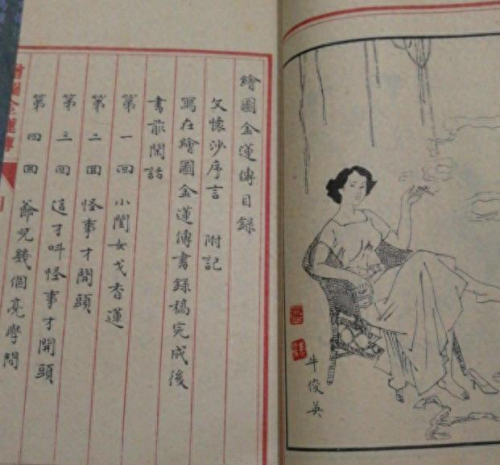 繪圖金蓮傳目錄
文懷沙序言 附記
寫在繪圖金蓮傳書錄稿完成後
書前閑話
第一回 小閨女戈香蓮
第二回 怪事才開頭
第三回 這才叫怪事才開頭
第四回 爺兒幾個亮學問
牛俊英